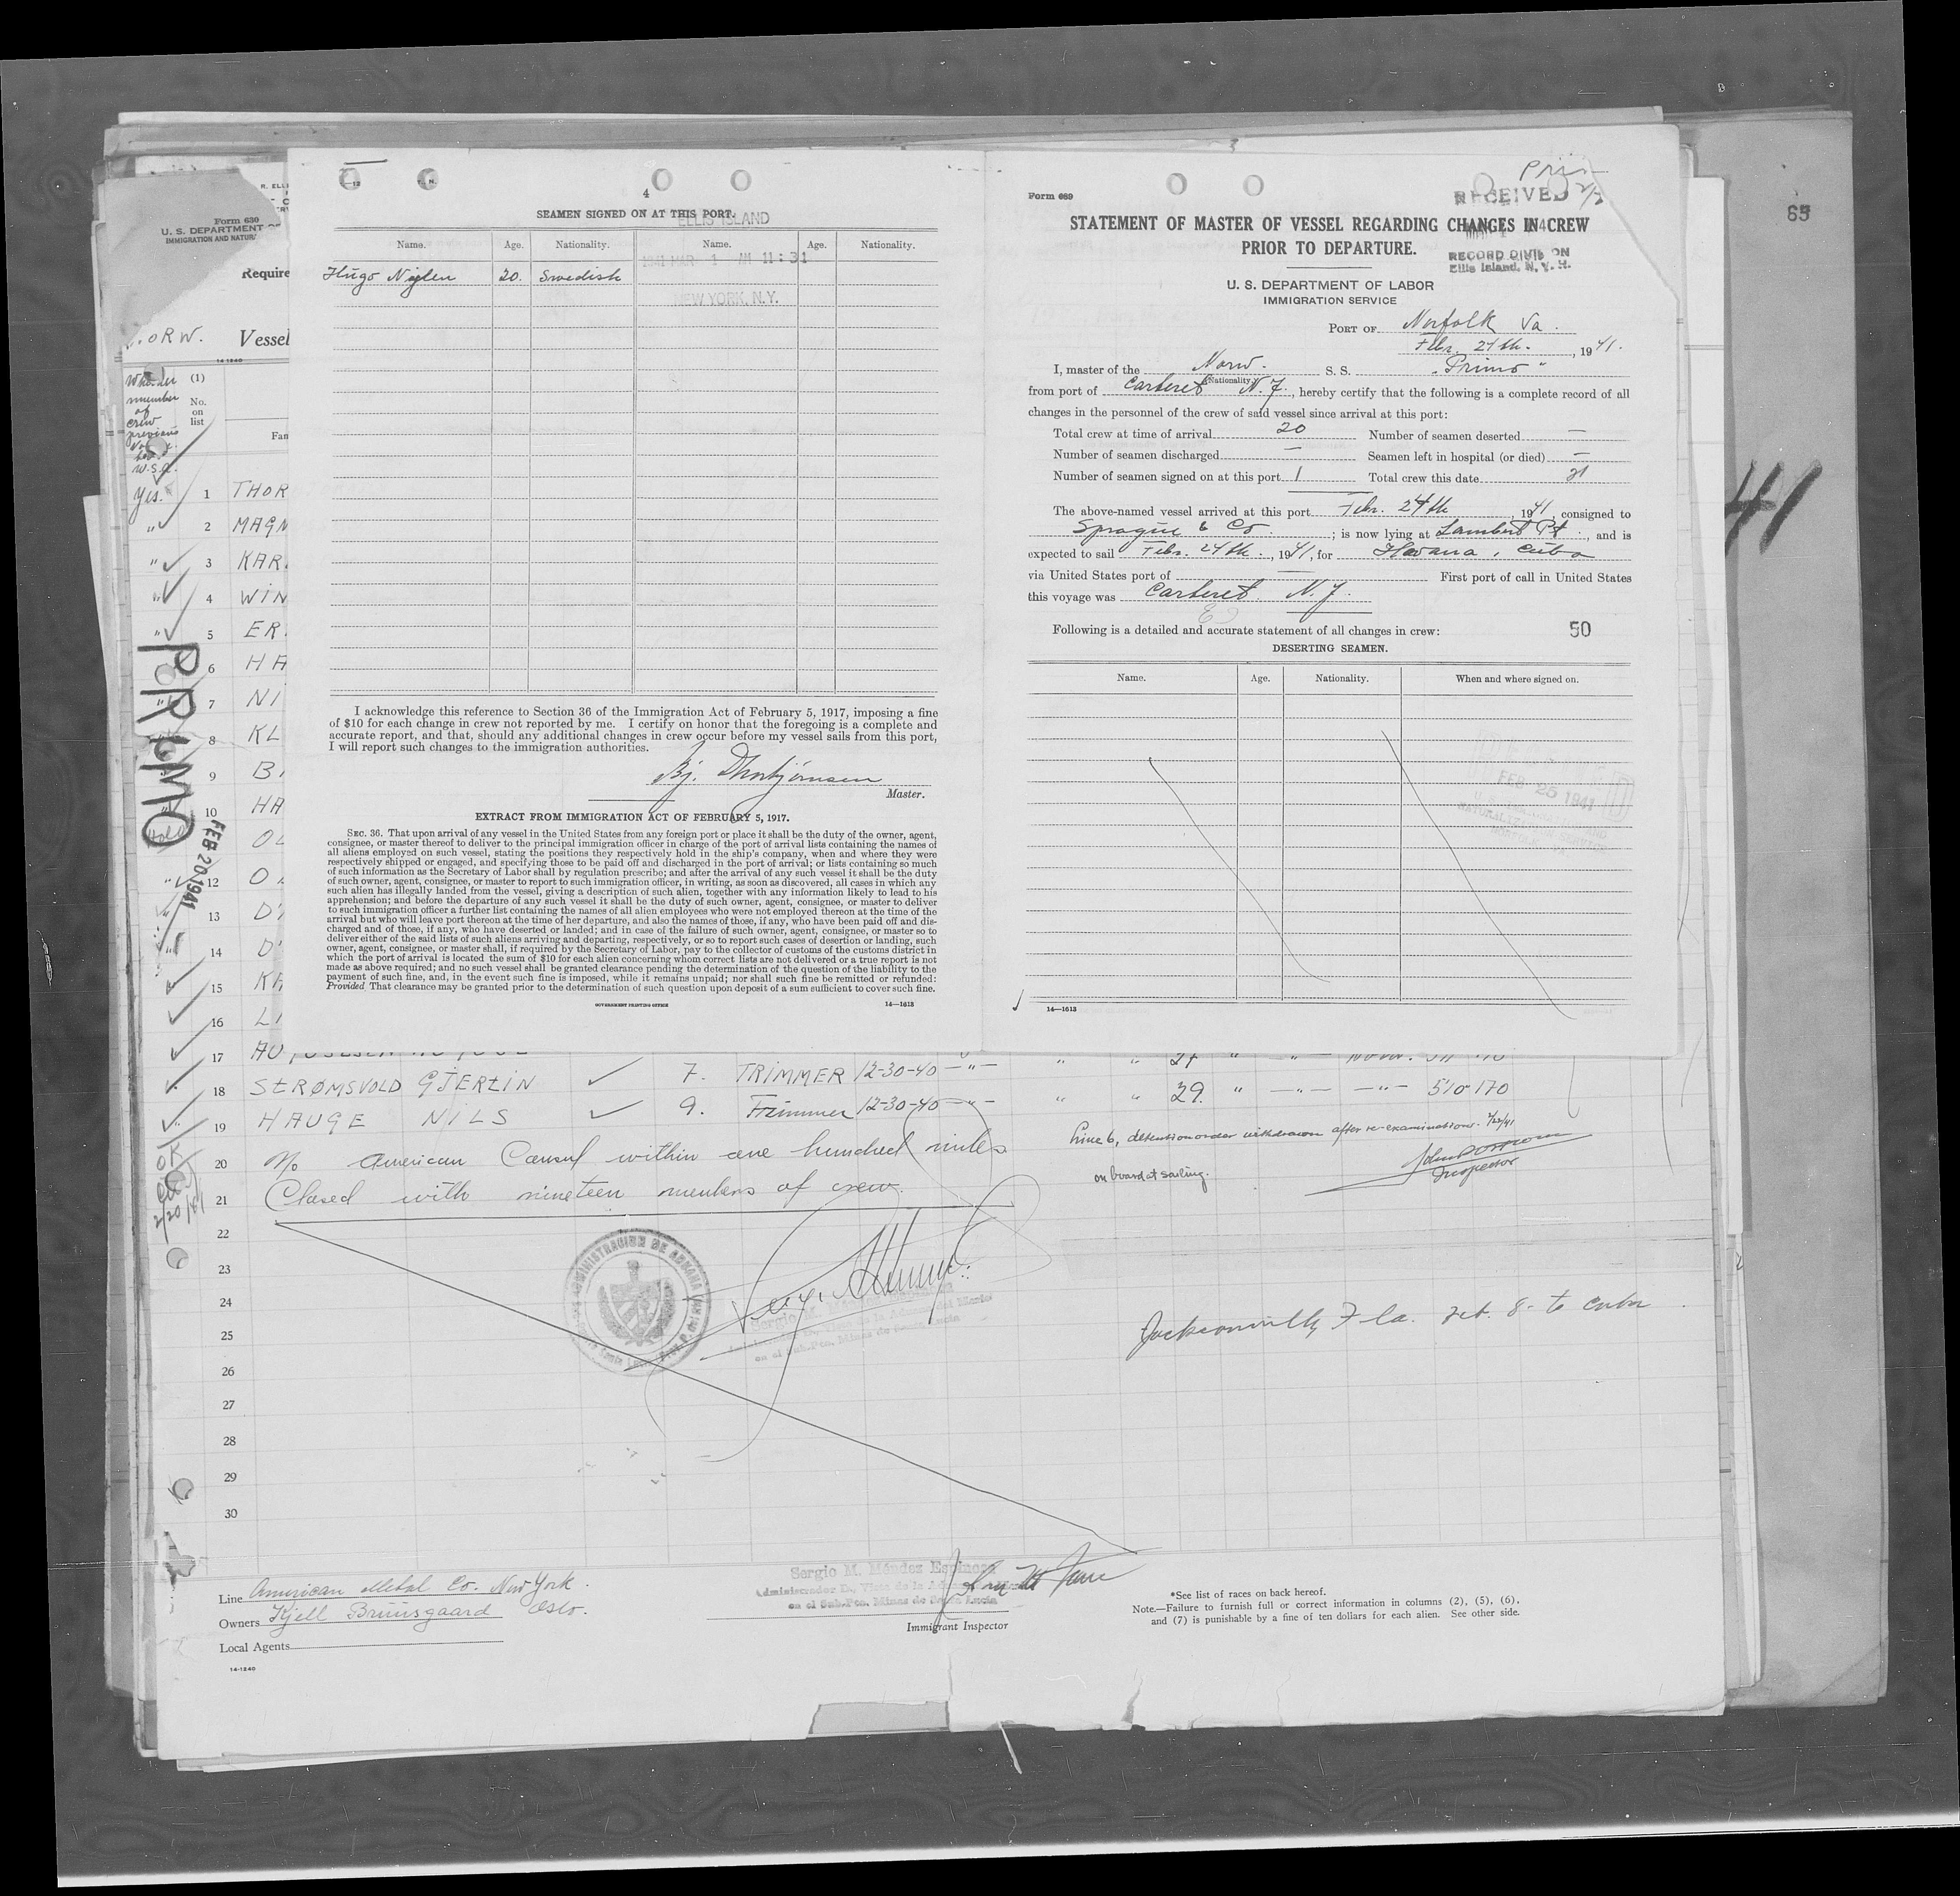 4
SEAMEN SIGNED ON AT THIS PORT.
ELLIS ISLAND
Name. Age. Nationality. Name. Age. Nationality.
1941 MAR 1 AM 11:31
Hugo Niglen 20. Swedish
NEW YORK, N.Y.
I acknowledge this reference to Section 36 of the Immigration Act of February 5, 1917, imposing a fine
of $10 for each change in crew not reported by me. I certify on honor that the foregoing is a complete and
accurate report, and that, should any additional changes in crew occur before my vessel sails from this port,
I will report such changes to the immigration authorities.
Bj. Thorbjørnsen
Master.
EXTRACT FROM IMMIGRATION ACT OF FEBRUARY 5, 1917.
SEC. 36. That upon arrival of any vessel in the United States from any foreign port or place it shall be the duty of the owner, agent,
consignee, or master thereof to deliver to the principal immigration officer in charge of the port of arrival lists containing the names of
all aliens employed on such vessel, stating the positions they respectively hold in the ship's company, when and where they were
respectively shipped or engaged, and specifying those to be paid off and discharged in the port of arrival; or lists containing so much
of such information as the Secretary of Labor shall by regulation prescribe; and after the arrival of any such vessel it shall be the duty
of such owner, agent, consignee, or master to report to such immigration officer, in writing, as soon as discovered, all cases in which any
such alien has illegally landed from the vessel, giving a description of such alien, together with any information likely to lead to his
apprehension; and before the departure of any such vessel it shall be the duty of such owner, agent, consignee, or master to deliver
to such immigration officer a further list containing the names of all alien employees who were not employed thereon at the time of the
arrival but who will leave port thereon at the time of her departure, and also the names of those, if any, who have been paid off and dis-
charged and of those, if any, who have deserted or landed; and in case of the failure of such owner, agent, consignee, or master so to
deliver either of the said lists of such aliens arriving and departing, respectively, or so to report such cases of desertion or landing, such
owner, agent, consignee, or master shall, if required by the Secretary of Labor, pay to the collector of customs of the customs district in
which the port of arrival is located the sum of $10 for each alien concerning whom correct lists are not delivered or a true report is not
made as above required; and no such vessel shall be granted clearance pending the determination of the question of the liability to the
payment of such fine, and, in the event such fine is imposed, while it remains unpaid; nor shall such fine be remitted or refunded:
Provided That clearance may be granted prior to the determination of such question upon deposit of a sum sufficient to cover such fine.
GOVERNMENT PRINTING OFFICE 14—1613
Form 689
RECEIVED
STATEMENT OF MASTER OF VESSEL REGARDING CHANGES IN CREW
PRIOR TO DEPARTURE.
RECORD DIVISION
Ellis Island, N. Y. H.
U. S. DEPARTMENT OF LABOR
IMMIGRATION SERVICE
PORT OF Norfolk Va.
Febr. 24th. , 1941.
I, master of the Norw. S. S. "Primo"
(Nationality)
from port of Carteret N.J., hereby certify that the following is a complete record of all
changes in the personnel of the crew of said vessel since arrival at this port:
Total crew at time of arrival 20 Number of seamen deserted —
Number of seamen discharged — Seamen left in hospital (or died) —
Number of seamen signed on at this port 1 Total crew this date 21
The above-named vessel arrived at this port Febr. 24th , 1941, consigned to
Sprague & Co. ; is now lying at Lambert Pt. , and is
expected to sail Febr. 24th. , 1941, for Havana, Cuba
via United States port of — First port of call in United States
this voyage was Carteret N.J.
Following is a detailed and accurate statement of all changes in crew: 50
DESERTING SEAMEN.
Name. Age. Nationality. When and where signed on.
FEB 25 1941
14—1613
65
41
Form 630
U. S. DEPARTMENT OF
IMMIGRATION AND NATUR
Require
NORW. Vessel
14-1240
Whether member of crew previous
U.S.A.
(1)
No. on list
Fam
Yes. 1 THOR
" 2 MAGN
" 3 KAR
" 4 WIN
" 5 ER
6 HA
7 NI
8 KL
9 BI
10 HA
Hold OL
" 12 O
13 D'
14 D'
15 KA
16 LI
17 AU
PRIMO
FEB 20 1941
18 STRØMSVOLD GJERTIN 7. TRIMMER 12-30-40 —"— " " 29. " —"— —"— 510 170
19 HAUGE NILS 9. Trimmer 12-30-40 —"—
Line 6, detention order withdrawn after re-examination. 2/20/41
on board at sailing.
Inspector
OK
2/20/41
20 No American Consul within one hundred miles
21 Closed with nineteen members of crew.
22
23
24
25
26
27
28
29
30
Jacksonville, Fla. Feb. 8- to Cuba
Sergio M. Méndez Espinosa
en el Sub-Pto. Minas de Santa Lucia
Line American Metal Co. New York.
Owners Kjell Bruusgaard Oslo.
Local Agents
14-1240
Sergio M. Méndez Espinosa
Administrador D., Vista de la Aduana
en el Sub-Pto. Minas de Santa Lucia
Immigrant Inspector
*See list of races on back hereof.
Note.—Failure to furnish full or correct information in columns (2), (5), (6),
and (7) is punishable by a fine of ten dollars for each alien. See other side.